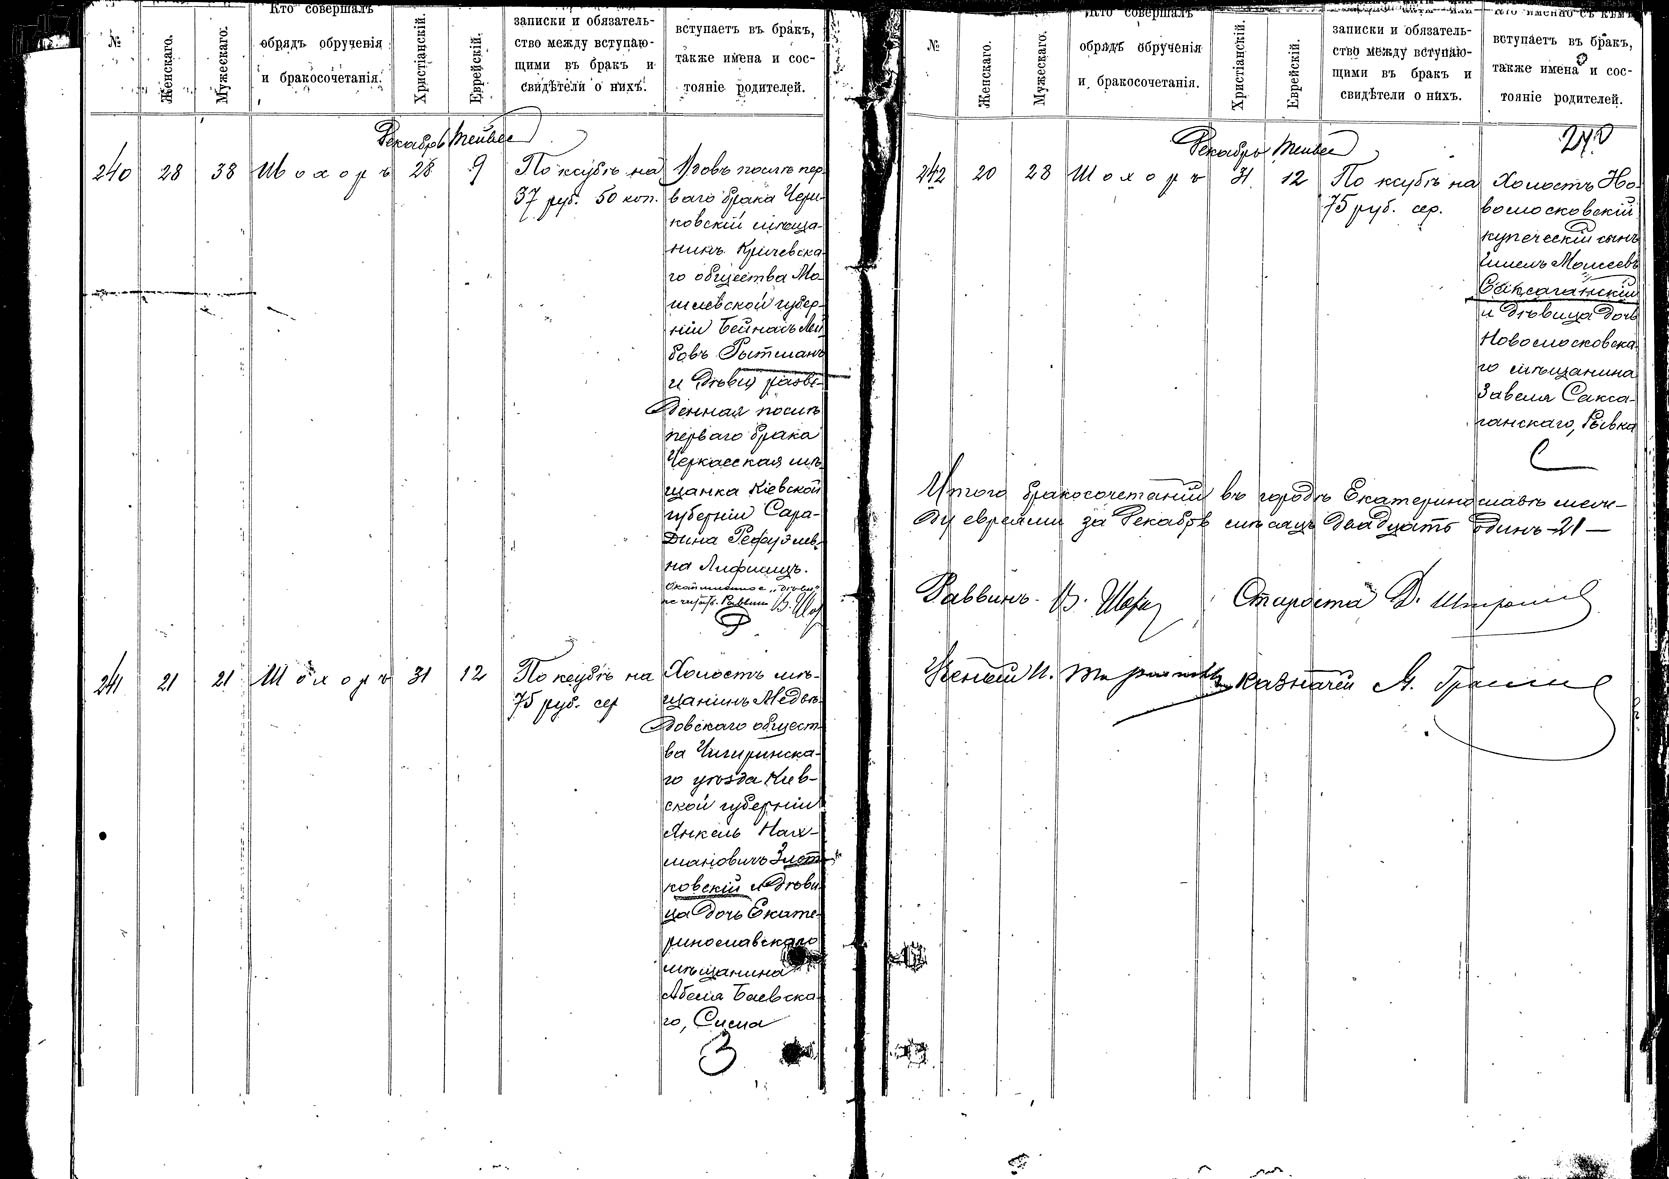 №
Женскаго.
Мужескаго.
Кто совершалъ
обрядъ обрученія
и бракосочетанія.
Христіанскій.
Еврейскій.
записки и обязатель-
ство между вступаю-
щими въ бракъ и
свидѣтели о нихъ.
вступаетъ въ бракъ,
также имена и сос-
тояніе родителей.
Декабрь Тейвес
240 28 38 Шохоръ 28 9
По ксубѣ на
37 руб. 50 коп.
Вдовъ послѣ пер
ваго брака Чери-
ковскій мѣща-
нинъ Кричевска-
го общества Мо-
гилевской губер-
ніи Бейнасъ Лей
бовъ Рытманъ
и Дѣвиц разве-
денная послѣ
перваго брака
Черкасская мѣ-
щанка Кіевской
губерніи Сара-
Дина Рефуэлев-
на Лифшицъ.
не читать. Раввинъ В. Шор
241 21 21 Шохоръ 31 12
По ксубѣ на
75 руб. сер
Холостъ мѣ-
щанинъ Медвѣ-
довскаго общест-
ва Чигиринска-
го уѣзда Кіев-
ской губерніи
Янкель Нах-
мановичъ Злот-
ковскій и Дѣви-
ца дочь Екате-
ринославскаго
мѣщанина
Абеля Баевска-
го, Сисиа
З
№
Женскаго.
Мужескаго.
Кто совершалъ
обрядъ обрученія
и бракосочетанія.
Христіанскій.
Еврейскій.
записки и обязатель-
ство между вступаю-
щими въ бракъ и
свидѣтели о нихъ.
Кто именно съ кѣмъ
вступаетъ въ бракъ,
также имена и сос-
тояніе родителей.
240
Декабрь Тейвес
242 20 28 Шохоръ 31 12
По ксубѣ на
75 руб. сер.
Холостъ Но-
вомосковскій
купеческій сынъ
Шмель Моисеевъ
Саксаганскій
и Дѣвица дочь
Новомосковска-
го мѣщанина
Завеля Сакса-
ганскаго, Рывка
С
Итого бракосочетаній въ городѣ Екатеринославѣ меж-
ду евреями за Декабрь мѣсяцъ двадцать одинъ -21-
Раввинъ В. Шор Староста Д.
Ученый И. казначей М.